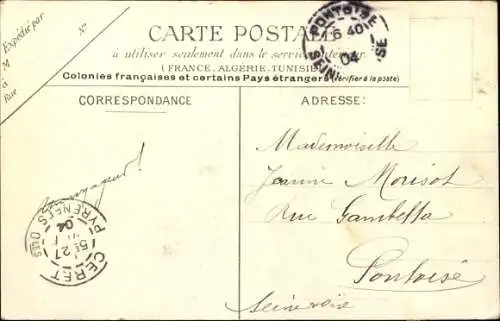 Expédié par
M
à
Rue
N°
CARTE POSTALE
à utiliser seulement dans le service intérieur
(FRANCE, ALGÉRIE, TUNISIE)
Colonies françaises et certains Pays étrangers (Vérifier à la poste)
PONTOISE
6 40
04
SEINE
OISE
CORRESPONDANCE
ADRESSE:
Mademoiselle
Jeanne Morisot
Rue Gambetta
Pontoise
Seine oise
CERET
5E 27
04
PYRENEES ORles